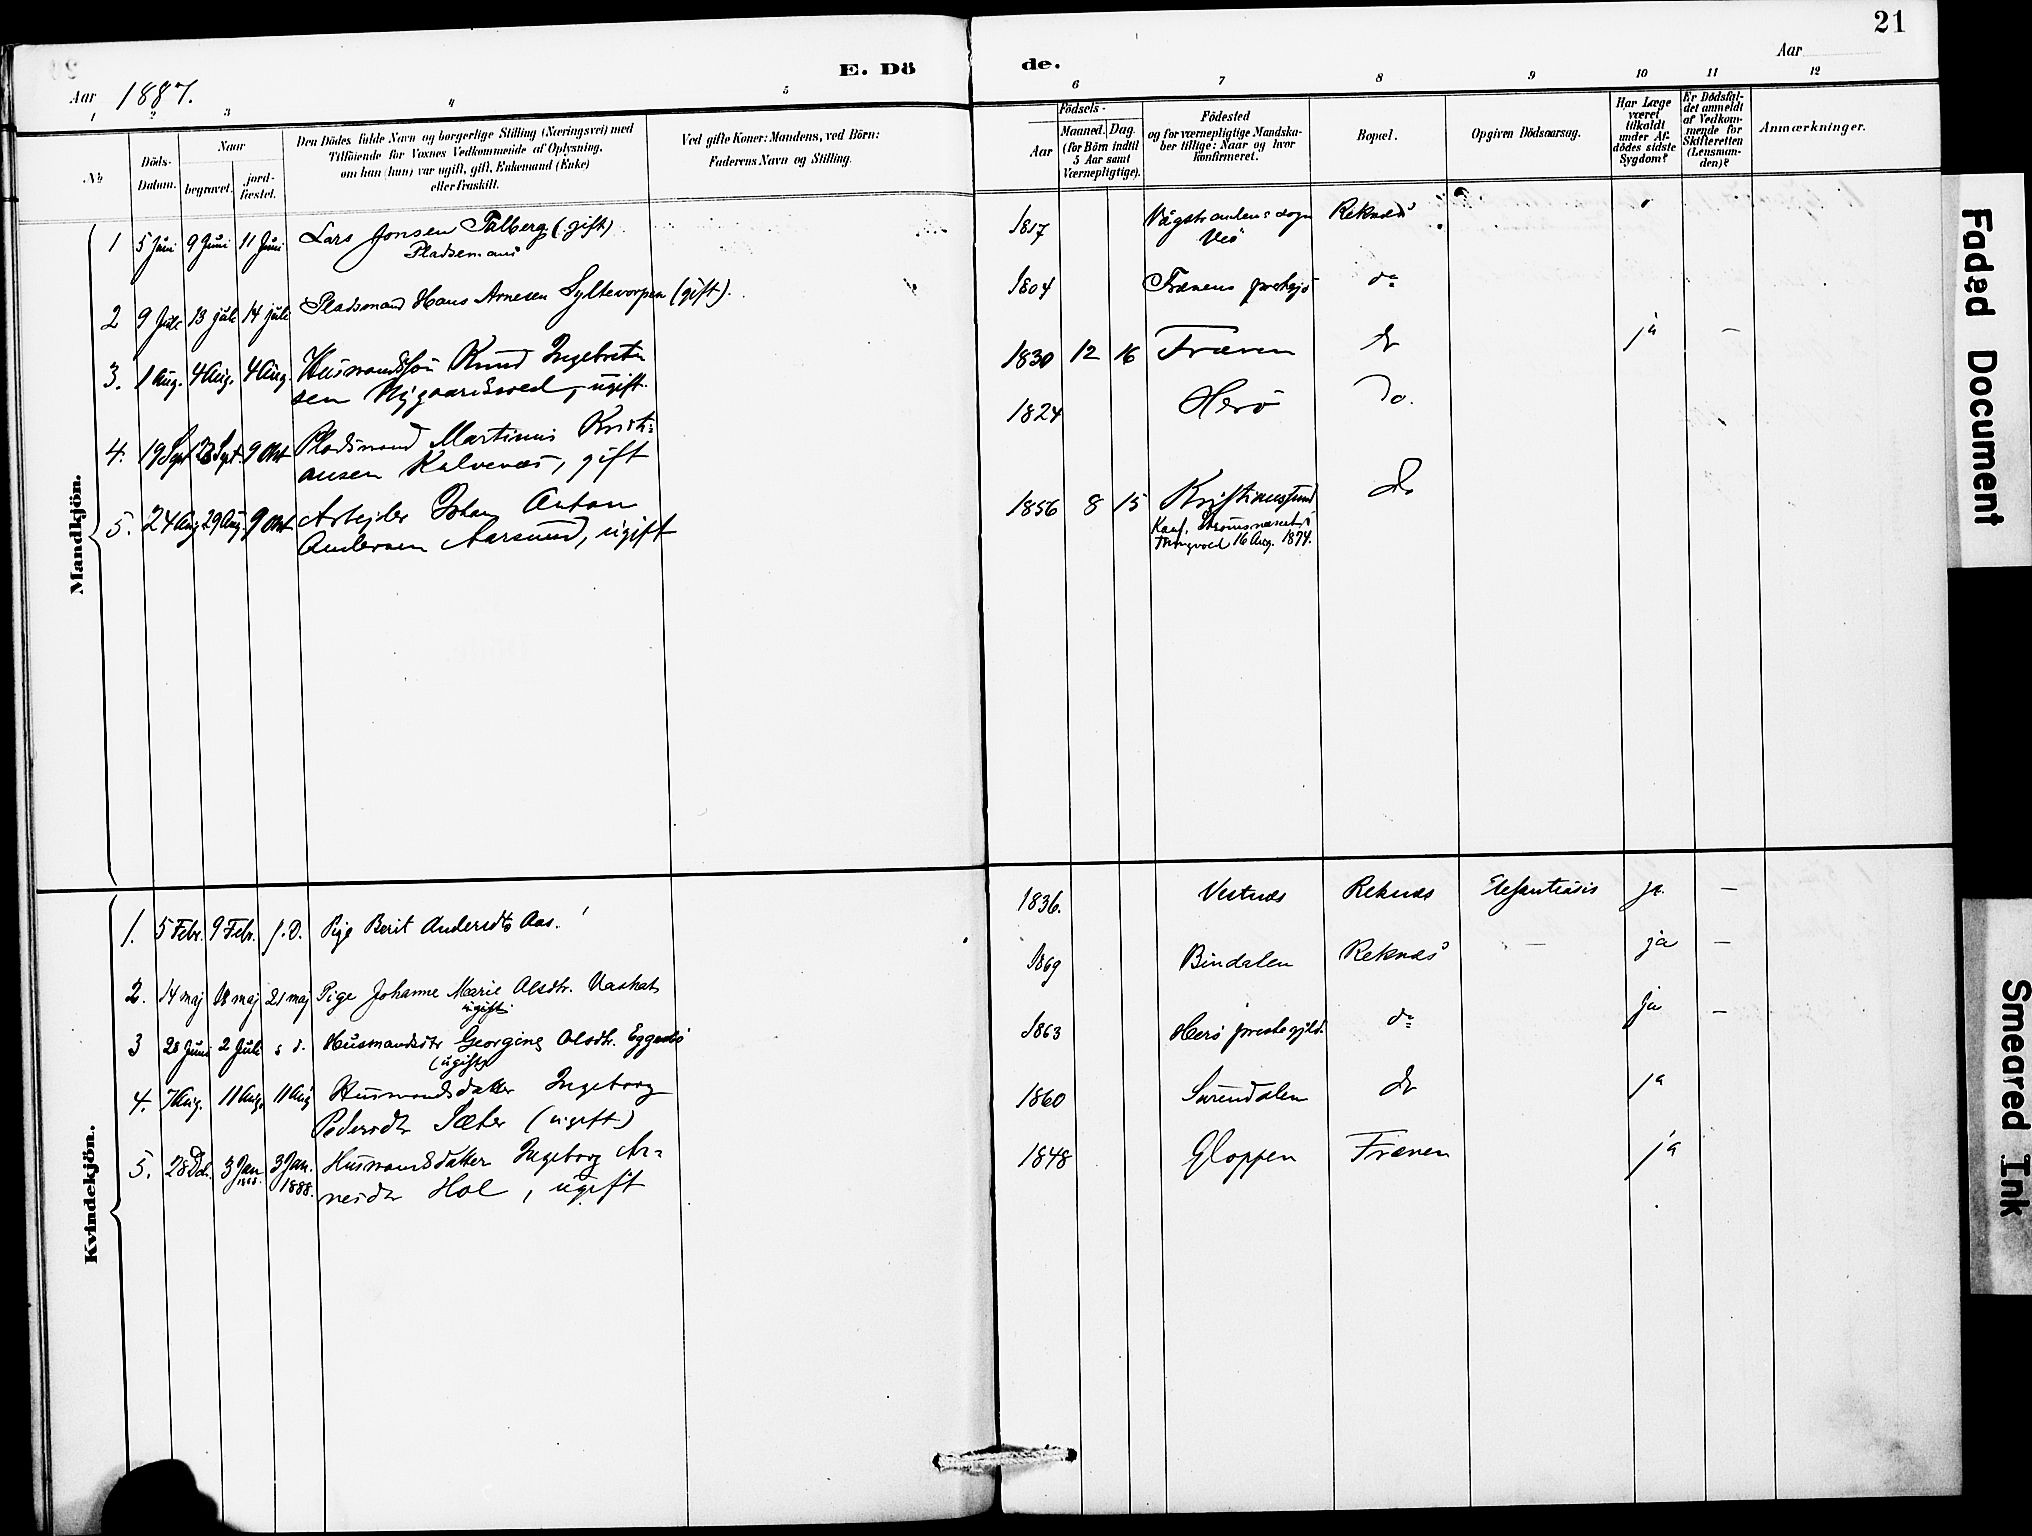 E. Dö
de.
21
Aar 1887.
Aar
1 2 3 4 5 6 7 8 9 10 11 12
№
Döds-
Datum.
Naar
begravet.
jord-
fæstet.
Den Dödes fulde Navn og borgerlige Stilling (Næringsvei) med
Tilföiende for Voxnes Vedkommende af Oplysning,
om han (hun) var ugift, gift, Enkemand (Enke)
eller fraskilt.
Ved gifte Koner: Mandens, ved Börn:
Faderens Navn og Stilling.
Födsels-
Aar
Maaned. Dag.
(for Börn indtil
5 Aar samt
Værnepligtige).
Födested
og for værnepligtige Mandska-
ber tillige: Naar og hvor
konfirmeret.
Bopæl.
Opgiven Dödsaarsag.
Har Læge
været
tilkaldt
under Af-
dödes sidste
Sygdom?
Er Dödsfal-
det anmeldt
af Vedkom-
mende for
Skifteretten
(Lensman-
den)?
Anmærkninger.
Mandkjön.
1 5 Juni 9 Juni 11 Juni Lars Jonsen Talberg (gift) 1817 Vågstrandens sogn Reknæs
Pladsemand Veö
2 9 Juli 13 juli 14 juli Pladsmand Hans Arnesen Syltevorpen (gift). 1804 Frænens prstgj. do
3. 1 Aug. 4 Aug. 4 Aug. Husmandssön Knud Ingebrigt- 1830 12 16 Fræven do ja —
sen Nygaardsved, ugift.
4. 19 Sept 23 Sept. 9 Okt Pladsmand Martinus Kristi= 1824 Herö Do.
ansen Kalvenæs, gift
5. 24 Aug 29 Aug. 9 Okt Arbejder Johan Anton 1856 8 15 Kristiansund do
Andersen Aarsund, ugift
Konf. Strømsnæset i
Tingvold 16 Aug. 1874.
Kvindekjön.
1. 5 Febr. 9 Febr. s. D. Pige Berit Andersdtr Aas. 1836. Vestnæs Reknæs Elefantiasis ja —
2. 14 maj 18 maj 21 maj Pige Johanne Marie Olsdtr. 1869 Bindalen Reknæs — ja —
ugift.
3 28 Juni 2 Juli s d. Husmandsdtr Georgine Olsdtr. Eggesbö 1863 Herö prestegjeld. do ja —
(ugift)
4. 7 Aug. 11 Aug. 11 Aug Husmandsdatter Ingeborg 1860 Surendalen do ja
Pedersdtr Sæter (ugift)
5. 28 Dec. 3 Jan 1888. 3 Jan. 1888. Husmandsdatter Ingeborg Ar= 1848 Gloppen Frænen ja
nesdtr Hol, ugift
Faded Document
Smeared Ink